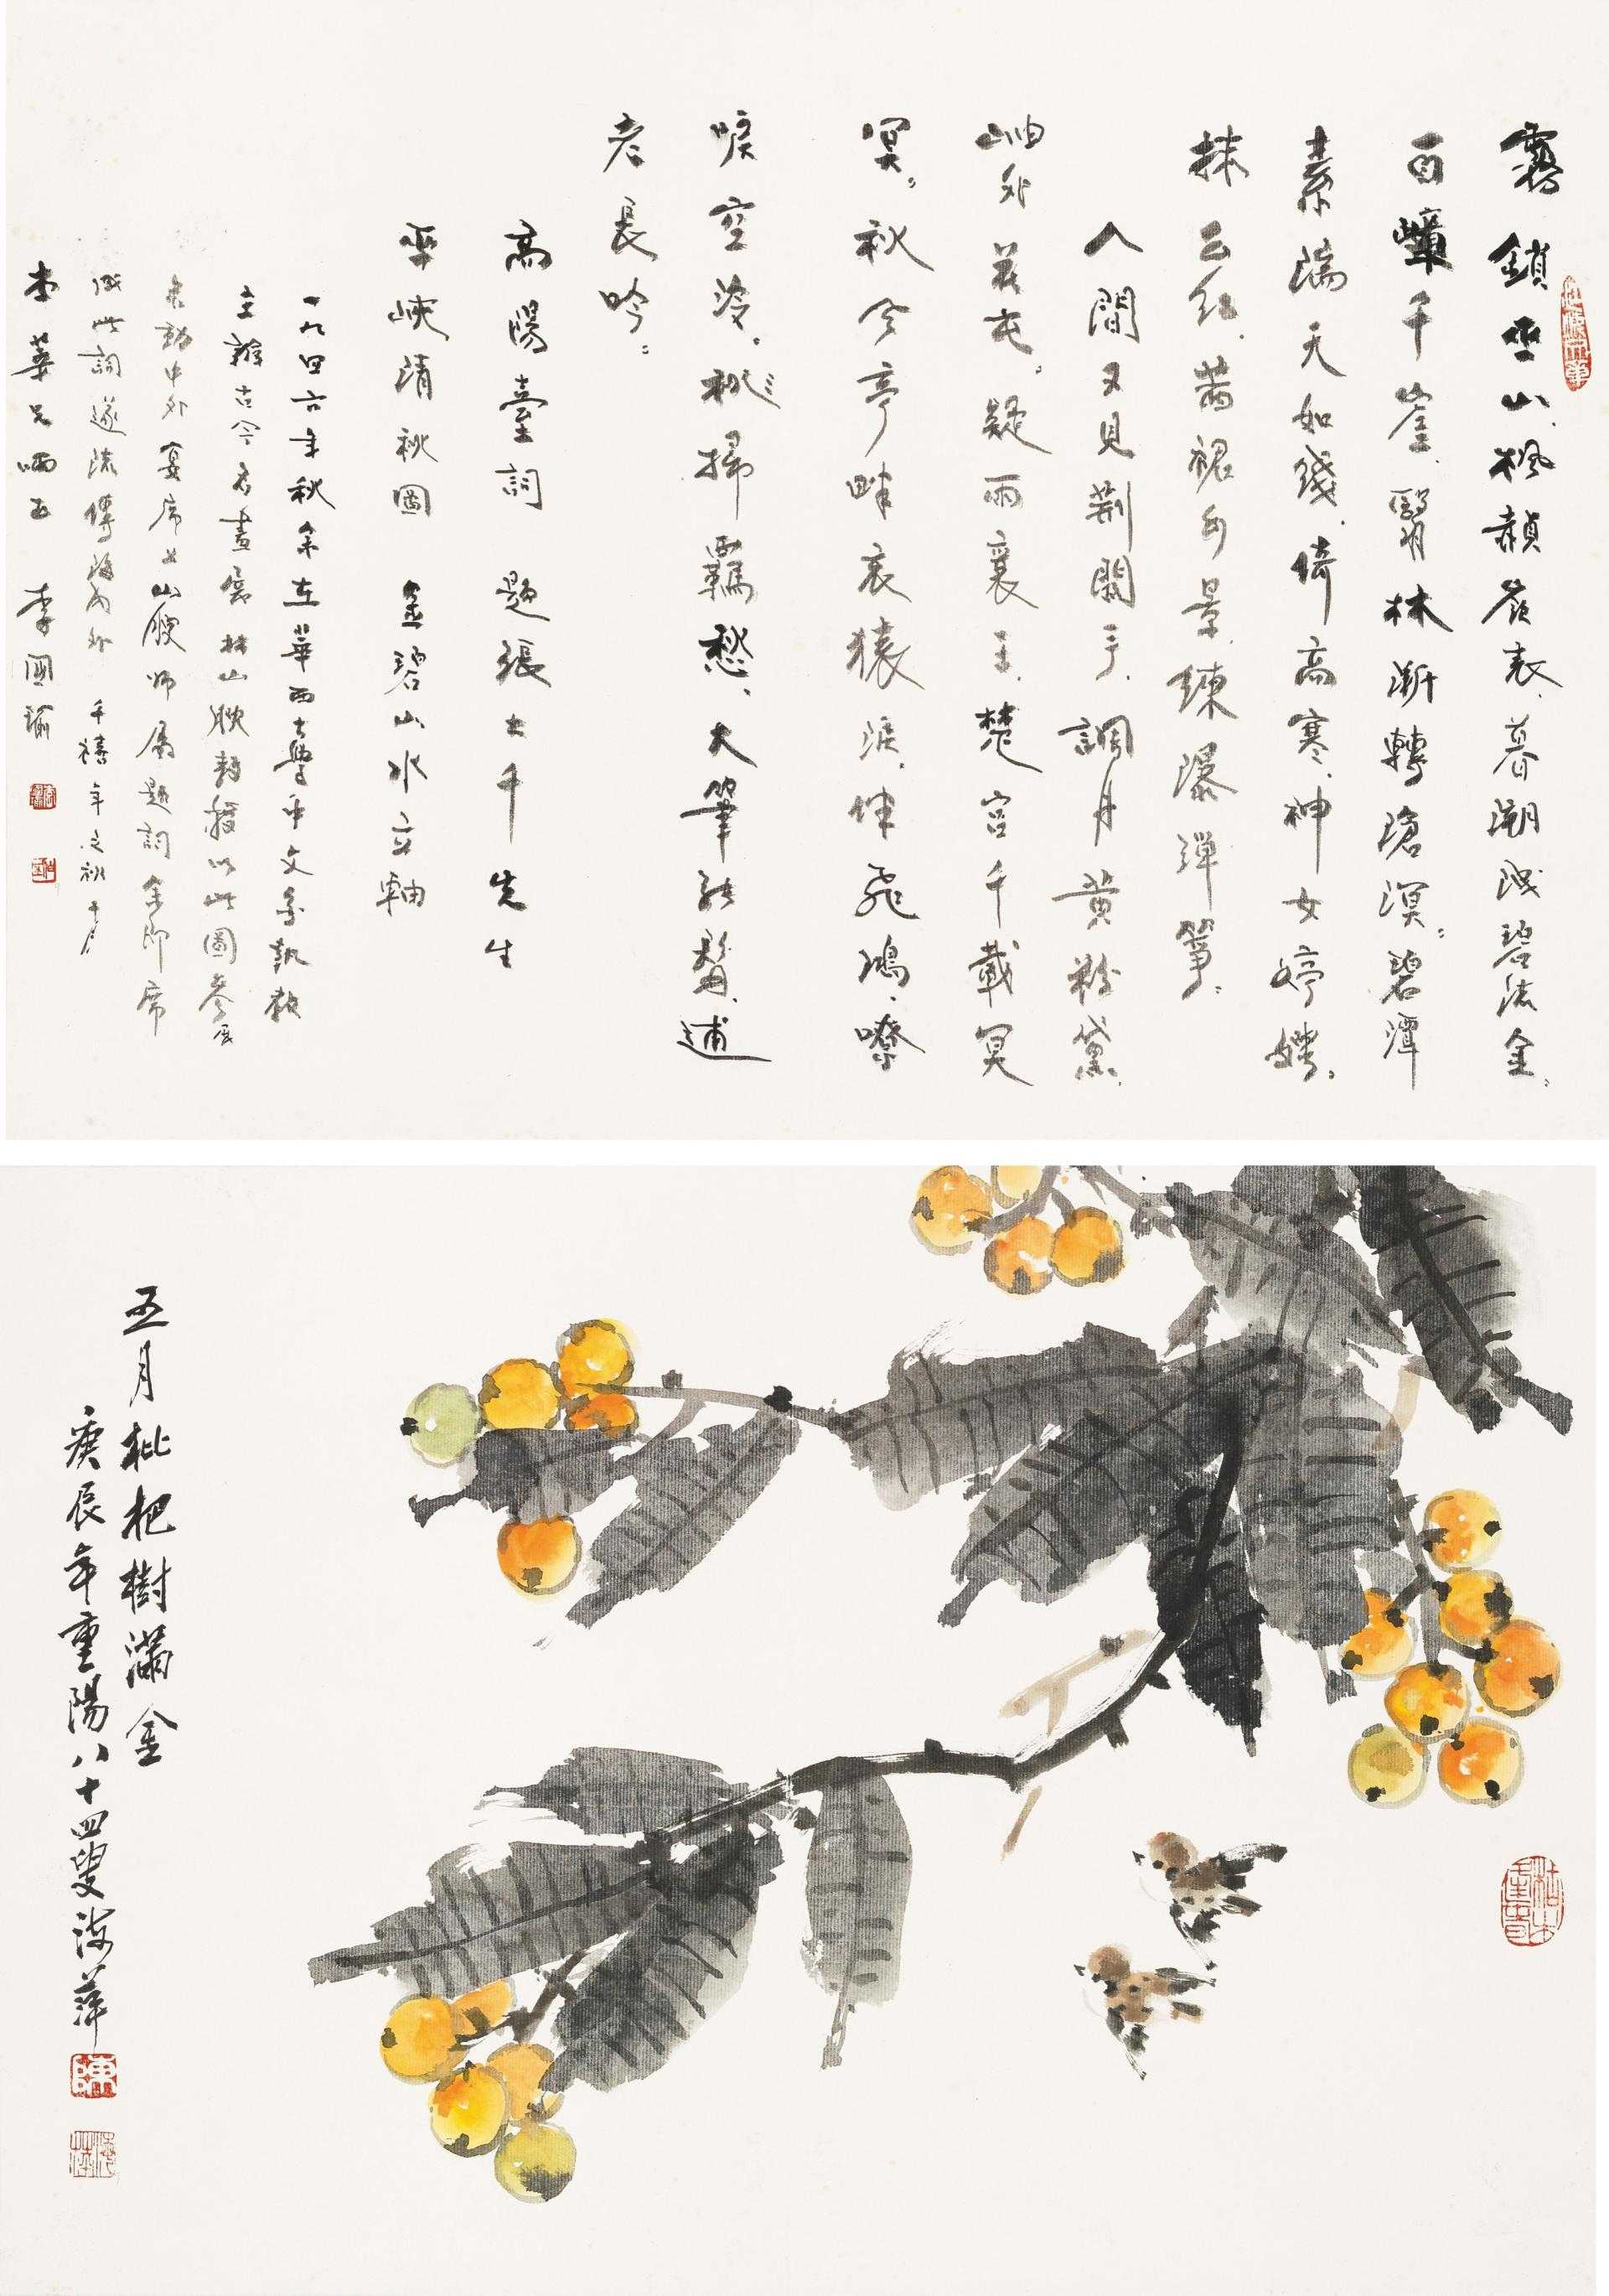 霧鎖巫山，楓赬嶺表，暮潮淺碧流金。
百嶂千崖，翳林漸轉滄溟。碧潭
素湍天如綫，倚高寒、神女婷娉。
抹雲紅，茜裙分景，練瀑彈箏。
人間又見荊關手，調月黃粉黛，
岫外花屯。疑雨襄王，楚宮千載冥
冥。秋今亭畔哀猿淚，伴飛鴻、嘹
唳空冷。掃羈愁，大筆能醫，逋
老長吟。
高陽臺詞 題張大千先生
巫峽清秋圖 金碧山水立軸
一九四六年秋余在華西大學中文系執教
主辦古今書畫展 林山腴教授以此圖參展
名動中外 宴席上山腴師屬題詞 余即席
成此詞 遂流傳海內外 千禧年之秋十月
李華兄哂正 李國瑜
五月枇杷樹滿金
庚辰年重陽八十四叟 萍
陳